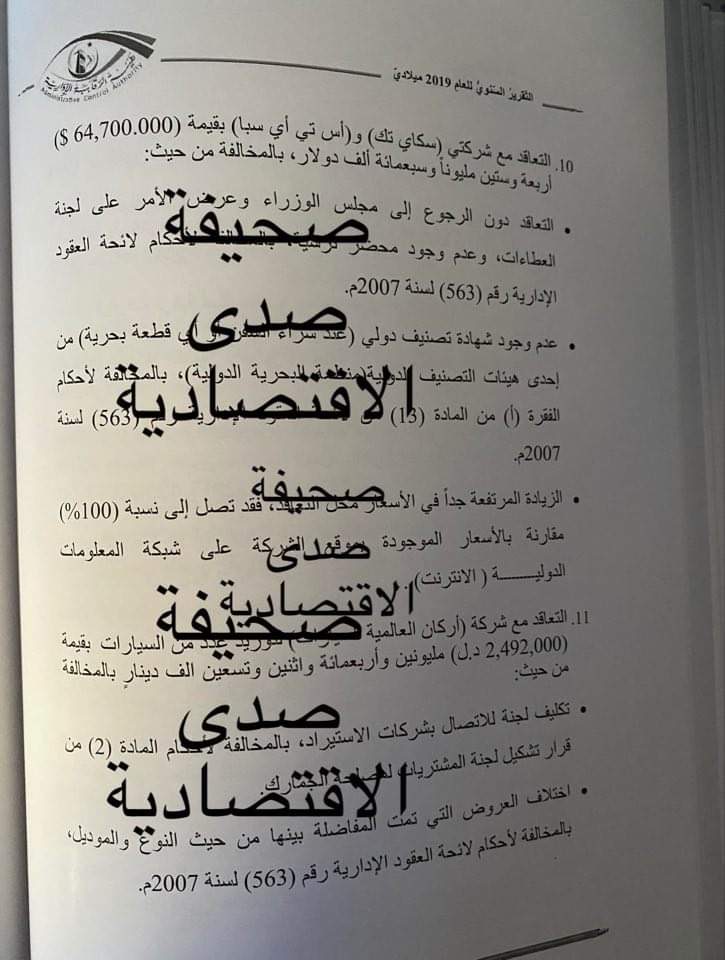 هيئة الرقابة الإدارية
Administrative Control Authority
التقرير السنوي للعام 2019 ميلادي
10. التعاقد مع شركتي (سكاي تك) و(أس تي أي سبا) بقيمة (64,700.000 $)
أربعة وستين مليوناً وسبعمائة ألف دولار، بالمخالفة من حيث:
• التعاقد دون الرجوع إلى مجلس الوزراء وعرض الأمر على لجنة
العطاءات، وعدم وجود محضر ترسية، لأحكام لائحة العقود
الإدارية رقم (563) لسنة 2007م.
• عدم وجود شهادة تصنيف دولي (عند شراء السفن أو أي قطعة بحرية) من
إحدى هيئات التصنيف الدولية(منظمة البحرية الدولية)، بالمخالفة لأحكام
الفقرة (أ) من المادة (13) رقم (563) لسنة
2007م.
• الزيادة المرتفعة جداً في الأسعار محل التعاقد، فقد تصل إلى نسبة (100%)
مقارنة بالأسعار الموجودة بموقع الشركة على شبكة المعلومات
الدوليـــــــة ( الانترنت).
11. التعاقد مع شركة (أركان العالمية لتوريد عدد من السيارات بقيمة
(2,492,000 د.ل) مليونين وأربعمائة واثنين وتسعين الف دينارٍ بالمخالفة
من حيث:
• تكليف لجنة للاتصال بشركات الاستيراد، بالمخالفة لأحكام المادة (2) من
قرار تشكيل لجنة المشتريات لمصلحة الجمارك.
• اختلاف العروض التي تمت المفاضلة بينها من حيث النوع والموديل،
بالمخالفة لأحكام لائحة العقود الإدارية رقم (563) لسنة 2007م.
صحيفة
صدى
الاقتصادية
صحيفة
صدى
الاقتصادية
صحيفة
صدى
الاقتصادية